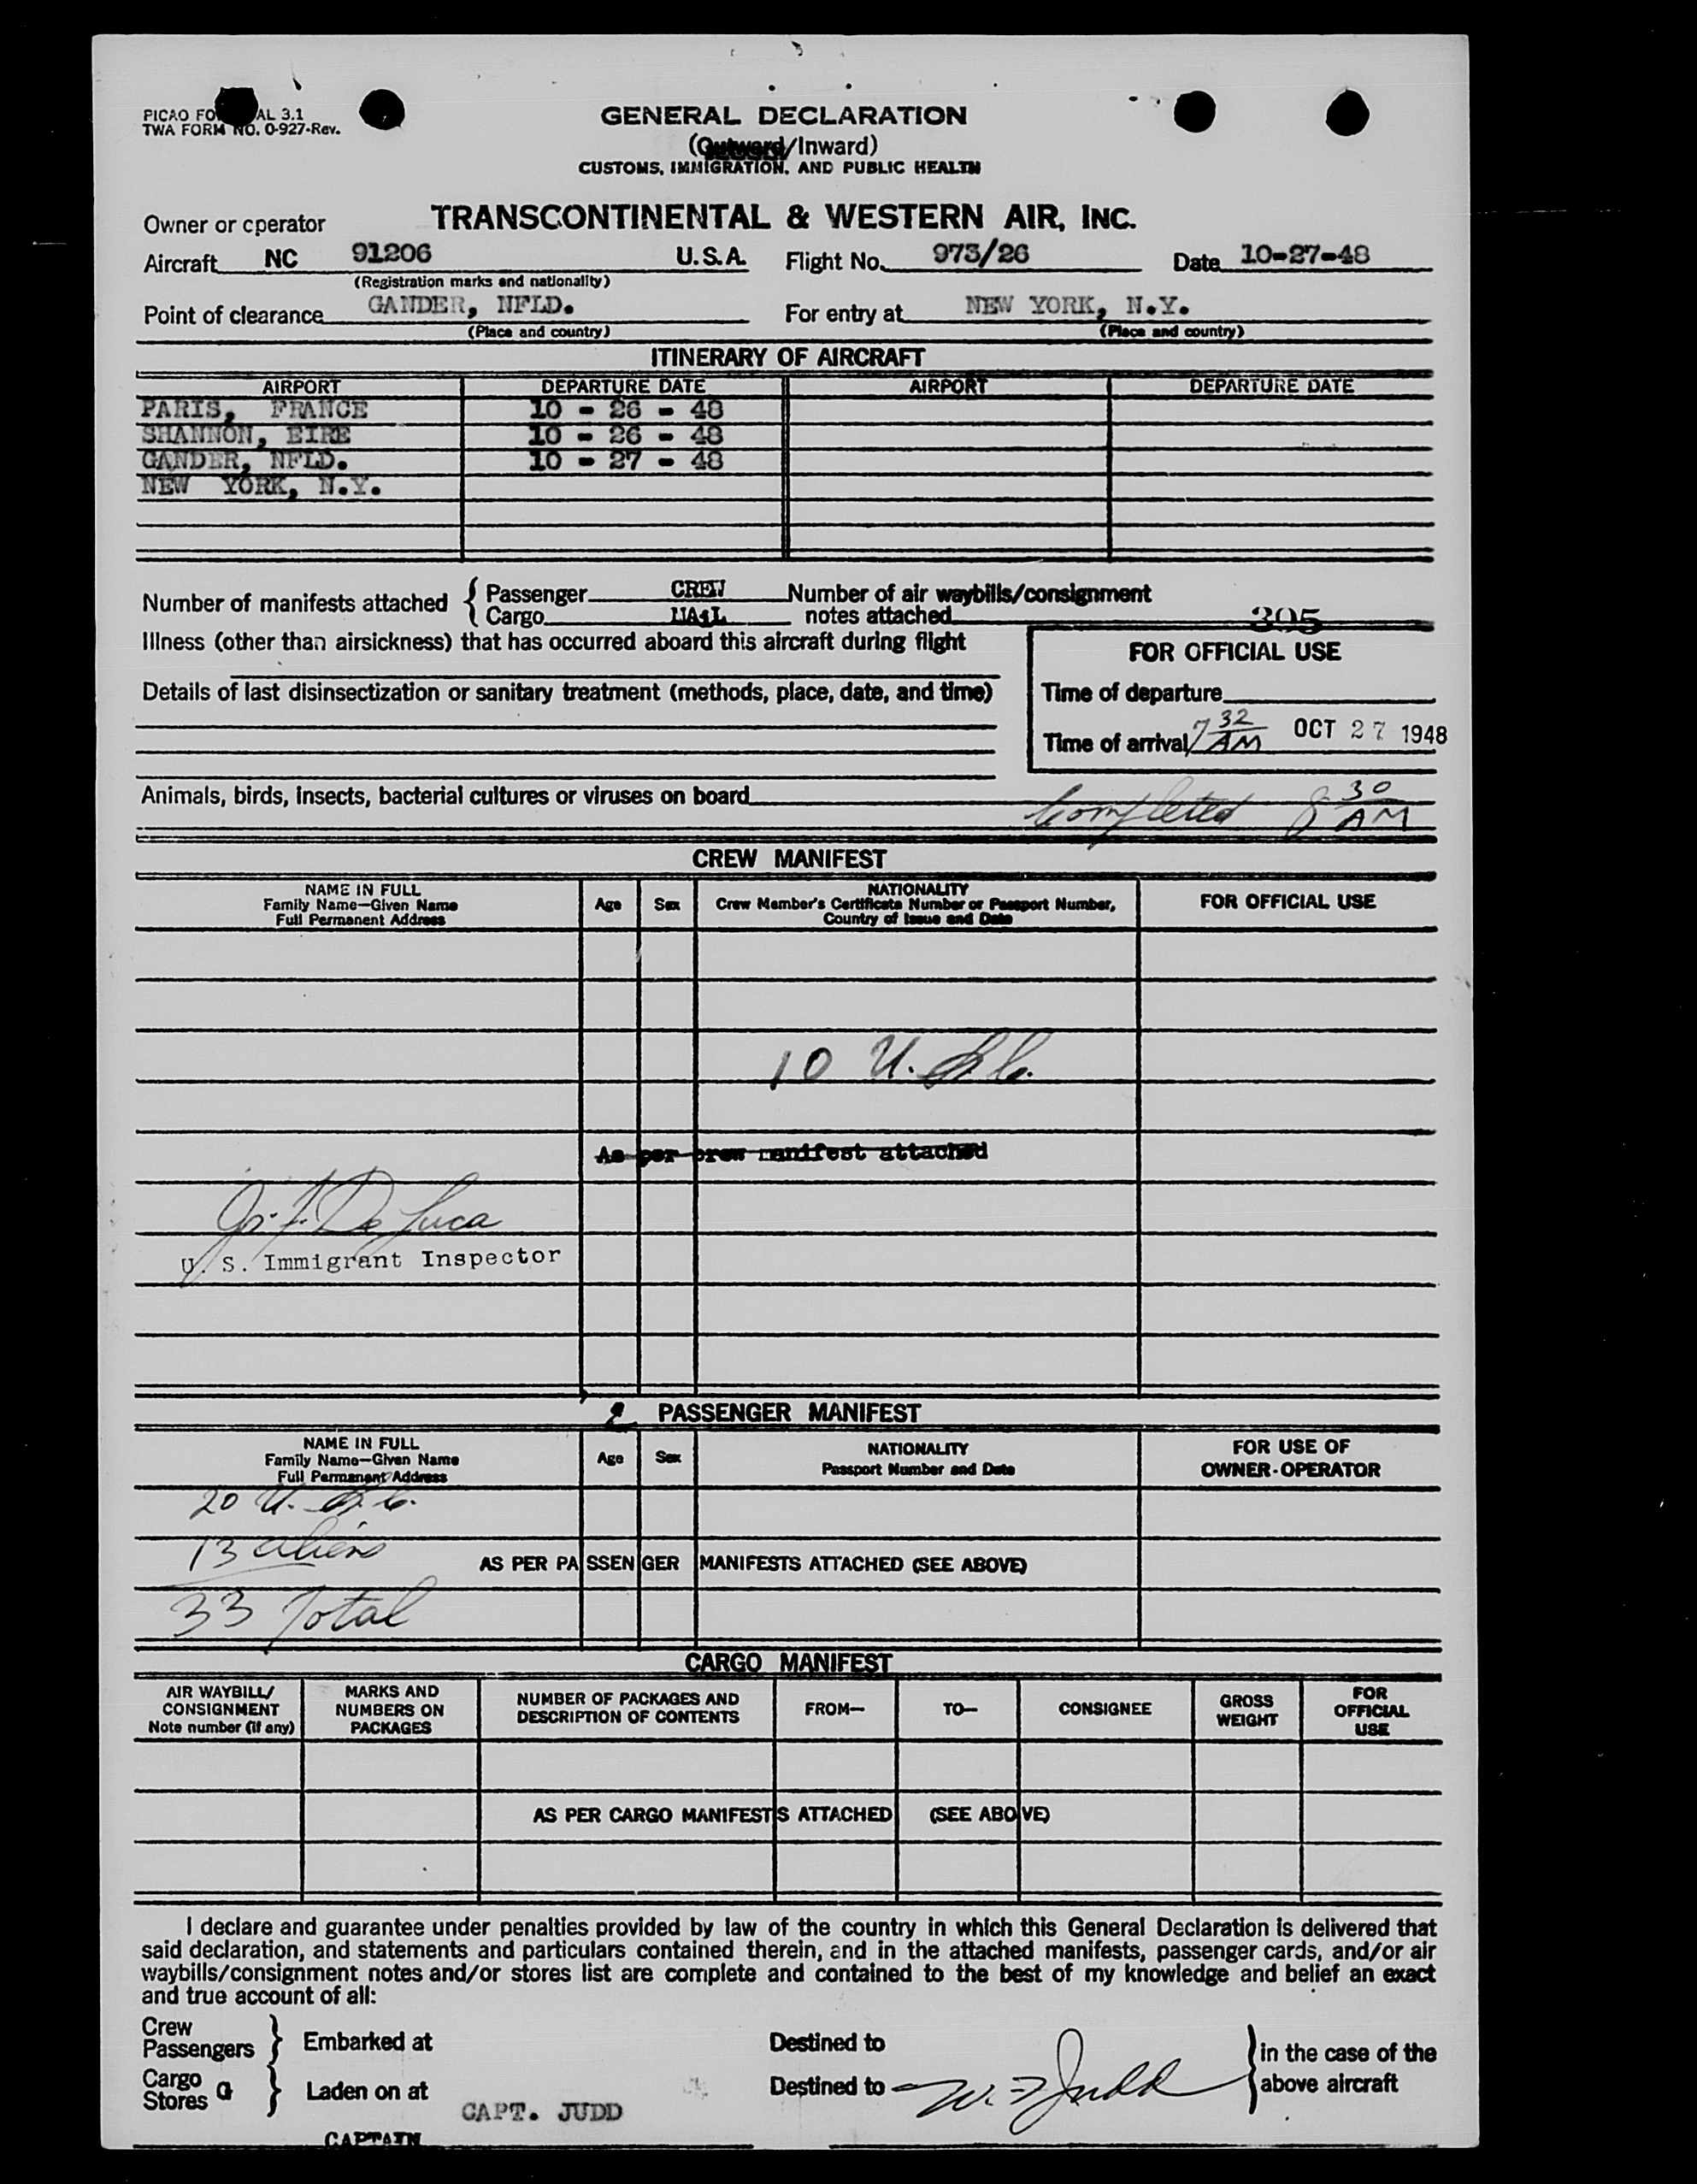 PICAO FO AL 3.1
TWA FORM NO. O-927-Rev.
GENERAL DECLARATION
(Outward/Inward)
CUSTOMS, IMMIGRATION, AND PUBLIC HEALTH
Owner or operator TRANSCONTINENTAL & WESTERN AIR, INC.
Aircraft NC 91206 U.S.A. Flight No. 973/26 Date 10-27-48
(Registration marks and nationality)
Point of clearance GANDER, NFLD. For entry at NEW YORK, N.Y.
(Place and country) (Place and country)
ITINERARY OF AIRCRAFT
AIRPORT DEPARTURE DATE AIRPORT DEPARTURE DATE
PARIS, FRANCE 10 - 26 - 48
SHANNON, EIRE 10 - 26 - 48
GANDER, NFLD. 10 - 27 - 48
NEW YORK, N.Y.
Number of manifests attached { Passenger CREW Number of air waybills/consignment
Cargo MAIL notes attached 305
Illness (other than airsickness) that has occurred aboard this aircraft during flight
FOR OFFICIAL USE
Details of last disinsectization or sanitary treatment (methods, place, date, and time)
Time of departure
Time of arrival 7 32 AM OCT 27 1948
Animals, birds, insects, bacterial cultures or viruses on board
Completed 8 30 AM
CREW MANIFEST
NAME IN FULL Age Sex NATIONALITY FOR OFFICIAL USE
Family Name—Given Name Crew Member's Certificate Number or Passport Number,
Full Permanent Address Country of Issue and Date
10 U.S.C.
As per crew manifest attached
De Luca
U. S. Immigrant Inspector
2 PASSENGER MANIFEST
NAME IN FULL Age Sex NATIONALITY FOR USE OF
Family Name—Given Name Passport Number and Date OWNER-OPERATOR
Full Permanent Address
20 U.S.C.
13 aliens
AS PER PASSENGER MANIFESTS ATTACHED (SEE ABOVE)
33 Total
CARGO MANIFEST
AIR WAYBILL/ MARKS AND NUMBER OF PACKAGES AND FROM— TO— CONSIGNEE GROSS FOR
CONSIGNMENT NUMBERS ON DESCRIPTION OF CONTENTS WEIGHT OFFICIAL
Note number (if any) PACKAGES USE
AS PER CARGO MANIFESTS ATTACHED (SEE ABOVE)
I declare and guarantee under penalties provided by law of the country in which this General Declaration is delivered that
said declaration, and statements and particulars contained therein, and in the attached manifests, passenger cards, and/or air
waybills/consignment notes and/or stores list are complete and contained to the best of my knowledge and belief an exact
and true account of all:
Crew
Passengers } Embarked at Destined to in the case of the
Cargo
Stores } Laden on at Destined to W. F. Judd above aircraft
CAPT. JUDD
CAPTAIN